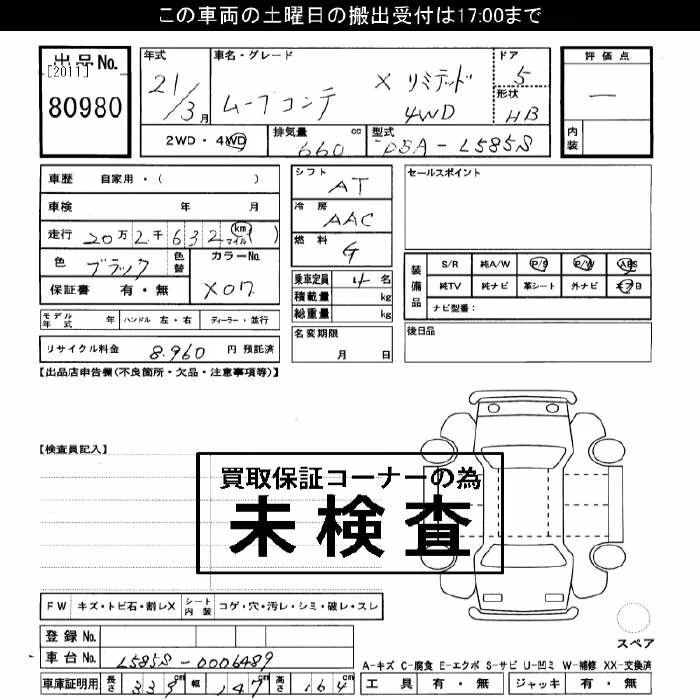 この車両の土曜日の搬出受付は17:00まで
出品No.
[2011]
80980
年式
21/3月
車名・グレード
ムーブコンテ
X リミテッド
4WD
ドア
5
形状
HB
評価点
―
内装
2WD・4WD
排気量 660 cc
型式 DBA-L585S
車歴 自家用・( )
車検 年 月
走行 20万2千632 km マイル( )
色 ブラック 色替
カラーNo. X07
保証書 有・無
モデル年式 年 ハンドル 左・右 ディーラー・並行
リサイクル料金 8,960 円 預託済
シフト AT
冷房 AAC
燃料 G
乗車定員 4 名
積載量 kg
総重量 kg
名変期限
月 日
セールスポイント
装備品
S/R 純A/W P/S P/W ABS
純TV 純ナビ 革シート 外ナビ エアB
ナビ型番:
後日品
【出品店申告欄(不良箇所・欠品・注意事項等)】
【検査員記入】
買取保証コーナーの為
未検査
FW キズ・トビ石・割レX シート内装 コゲ・穴・汚レ・シミ・破レ・スレ
登録No.
車台No. L585S-0006489
車庫証明用 長さ 339cm 幅 147cm 高さ 164cm
スペア
A-キズ C-腐食 E-エクボ S-サビ U-凹ミ W-補修 XX-交換済
工具 有・無 ジャッキ 有・無